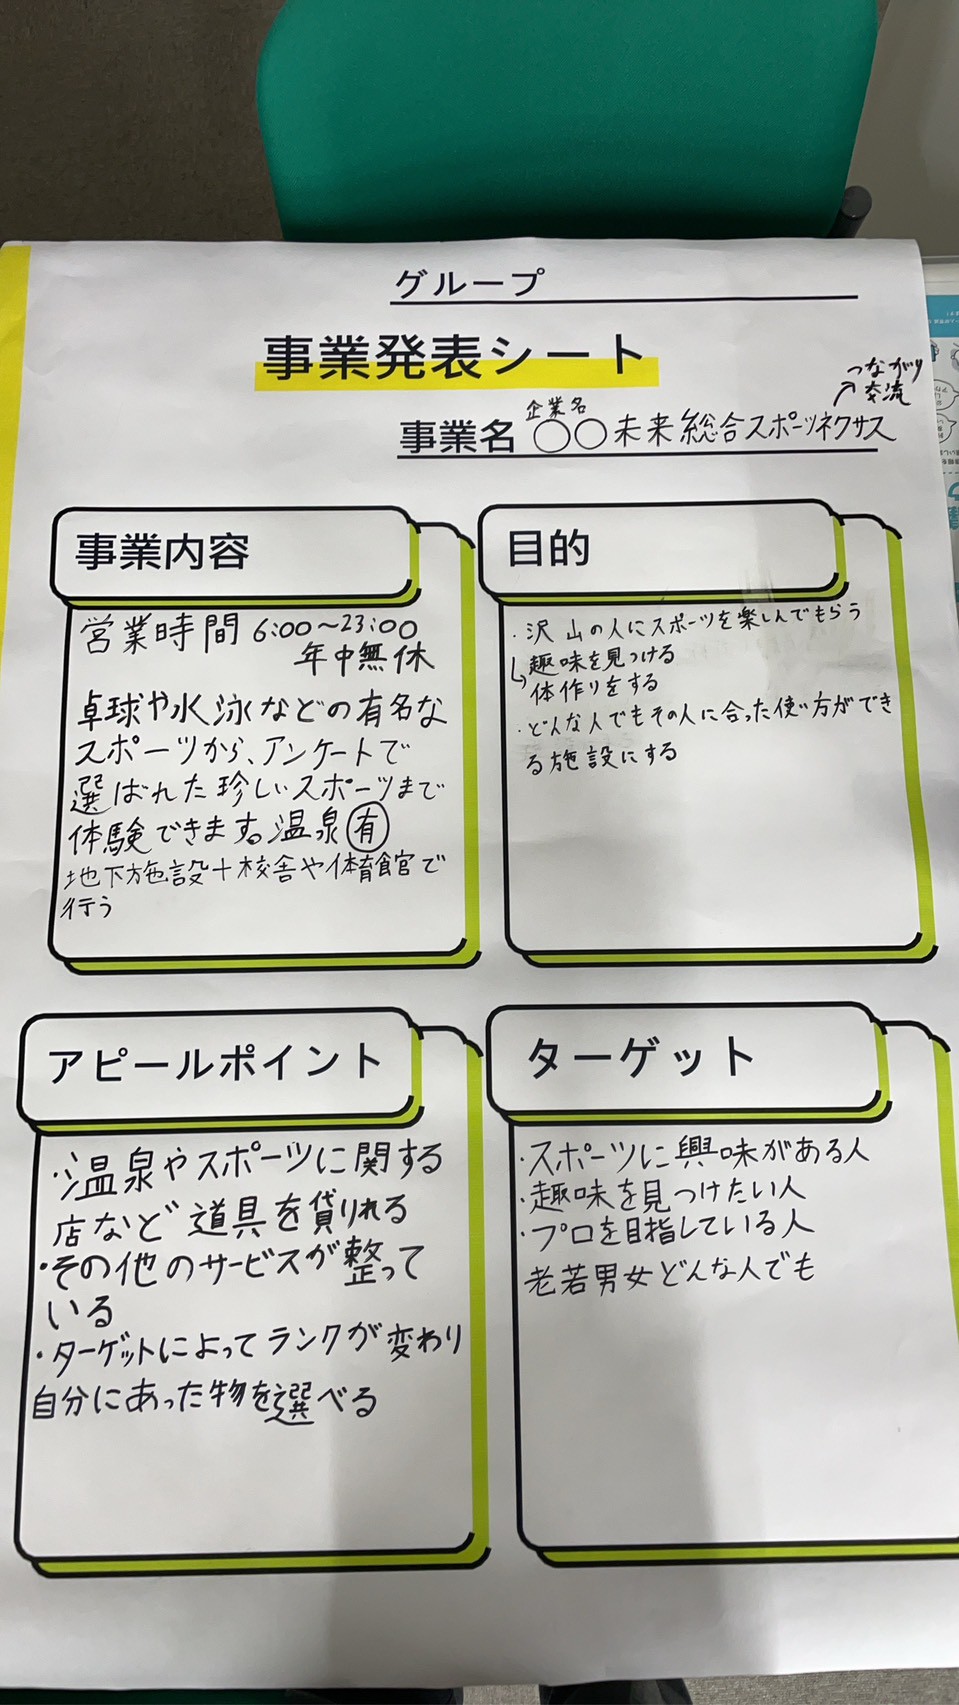 グループ
事業発表シート
つながり
交流
企業名
事業名 ○○未来総合スポーツネクサス
事業内容
営業時間 6:00~23:00
年中無休
卓球や水泳などの有名な
スポーツから、アンケートで
選ばれた珍しいスポーツまで
体験できます。温泉有
地下施設+校舎や体育館で
行う
目的
・沢山の人にスポーツを楽しんでもらう
↳趣味を見つける
体作りをする
・どんな人でもその人に合った使い方ができ
る施設にする
アピールポイント
・温泉やスポーツに関する
店など道具を貸りれる
・その他のサービスが整って
いる
・ターゲットによってランクが変わり
自分にあった物を選べる
ターゲット
・スポーツに興味がある人
・趣味を見つけたい人
・プロを目指している人
老若男女どんな人でも